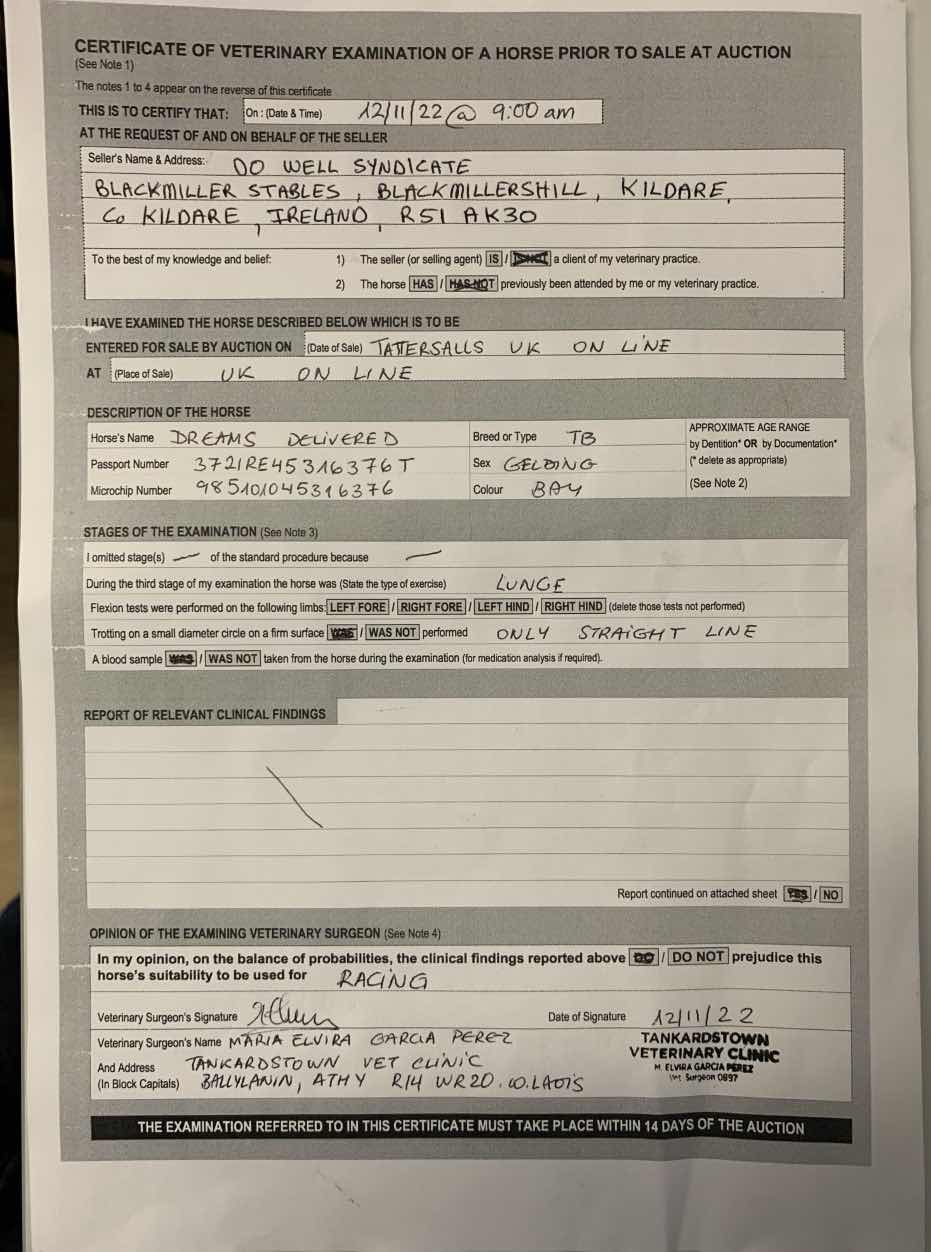 CERTIFICATE OF VETERINARY EXAMINATION OF A HORSE PRIOR TO SALE AT AUCTION
(See Note 1)
The notes 1 to 4 appear on the reverse of this certificate
THIS IS TO CERTIFY THAT: On : (Date & Time) 12/11/22 @ 9:00 am
AT THE REQUEST OF AND ON BEHALF OF THE SELLER
Seller's Name & Address:- DO WELL SYNDICATE
BLACKMILLER STABLES, BLACKMILLERSHILL, KILDARE,
Co KILDARE, IRELAND, R51 AK30
To the best of my knowledge and belief: 1) The seller (or selling agent) IS / IS NOT a client of my veterinary practice.
2) The horse HAS / HAS NOT previously been attended by me or my veterinary practice.
I HAVE EXAMINED THE HORSE DESCRIBED BELOW WHICH IS TO BE
ENTERED FOR SALE BY AUCTION ON (Date of Sale) TATTERSALLS UK ON LINE
AT (Place of Sale) UK ON LINE
DESCRIPTION OF THE HORSE
Horse's Name DREAMS DELIVERED Breed or Type TB APPROXIMATE AGE RANGE
by Dentition* OR by Documentation*
Passport Number 372IRE45316376T Sex GELDING (* delete as appropriate)
Microchip Number 985101045316376 Colour BAY (See Note 2)
STAGES OF THE EXAMINATION (See Note 3)
I omitted stage(s) — of the standard procedure because —
During the third stage of my examination the horse was (State the type of exercise) LUNGE
Flexion tests were performed on the following limbs: LEFT FORE / RIGHT FORE / LEFT HIND / RIGHT HIND (delete those tests not performed)
Trotting on a small diameter circle on a firm surface WAS / WAS NOT performed ONLY STRAIGHT LINE
A blood sample WAS / WAS NOT taken from the horse during the examination (for medication analysis if required).
REPORT OF RELEVANT CLINICAL FINDINGS
Report continued on attached sheet YES / NO
OPINION OF THE EXAMINING VETERINARY SURGEON (See Note 4)
In my opinion, on the balance of probabilities, the clinical findings reported above DO / DO NOT prejudice this
horse's suitability to be used for RACING
Veterinary Surgeon's Signature Date of Signature 12/11/22
Veterinary Surgeon's Name MARIA ELVIRA GARCIA PEREZ
And Address TANKARDSTOWN VET CLINIC
(In Block Capitals) BALLYLANIN, ATHY R14 WR20. CO. LAOIS
TANKARDSTOWN
VETERINARY CLINIC
M. ELVIRA GARCIA PEREZ
Vet Surgeon 0897
THE EXAMINATION REFERRED TO IN THIS CERTIFICATE MUST TAKE PLACE WITHIN 14 DAYS OF THE AUCTION